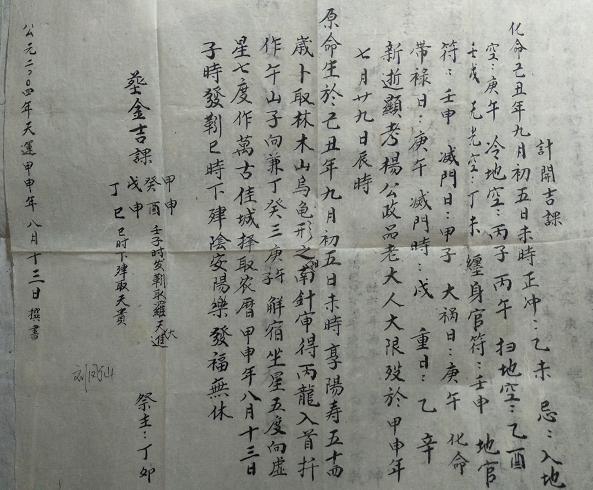 計開吉課
化命己丑年九月初五日未時正冲：乙未 忌：入地
空：庚午 冷地空：丙子 丙午 扫地空：乙酉
壬戌 天光空：丁未 纏身官符：壬申 地官
符：壬申 滅門日：甲子 大禍日：庚午 化命
帶禄日：庚午 滅門時：戌 重日：乙 辛
新逝顯考楊公政品老大人大限殁於甲申年
七月廿九日辰時
原命生於己丑年九月初五日未時享陽寿五十四
歲卜取林木山烏龟形之南針审得丙龍入首扦
作午山子向兼丁癸三庚子午觧宿坐星五度向虚
星七度作萬古佳城择取农暦甲申年八月十三日
子時發靷巳時下肂陰安陽樂發福無休
塟金吉課
甲申
癸酉 壬子時发靷取羅天大進
戊申
丁巳 巳時下肂取天貴
祭主：丁卯
公元二00四年天運甲申年八月十三日 撰書